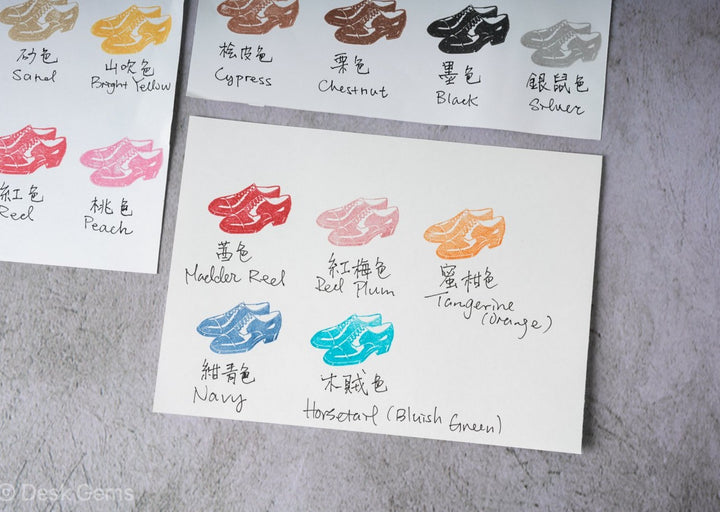 砂色
Sand
山吹色
Bright Yellow
紅色
Red
桃色
Peach
桧皮色
Cypress
栗色
Chestnut
墨色
Black
銀鼠色
Silver
茜色
Madder Red
紅梅色
Red Plum
蜜柑色
Tangerine
(Orange)
紺青色
Navy
木賊色
Horsetail (Bluish Green)
© Desk.Gems